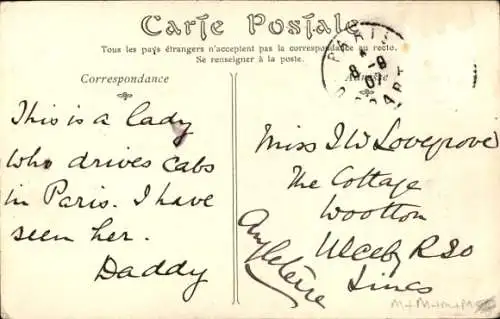 Carte Postale
Tous les pays étrangers n'acceptent pas la correspondance au recto.
Se renseigner à la poste.
Correspondance
Adresse
PARIS
8 - 9
07
DEPART
This is a lady
who drives cabs
in Paris. I have
seen her.
Daddy
Miss I W Lovegrove
The Cottage
Wootton
Ulceby RSO
Lincs
Angleterre